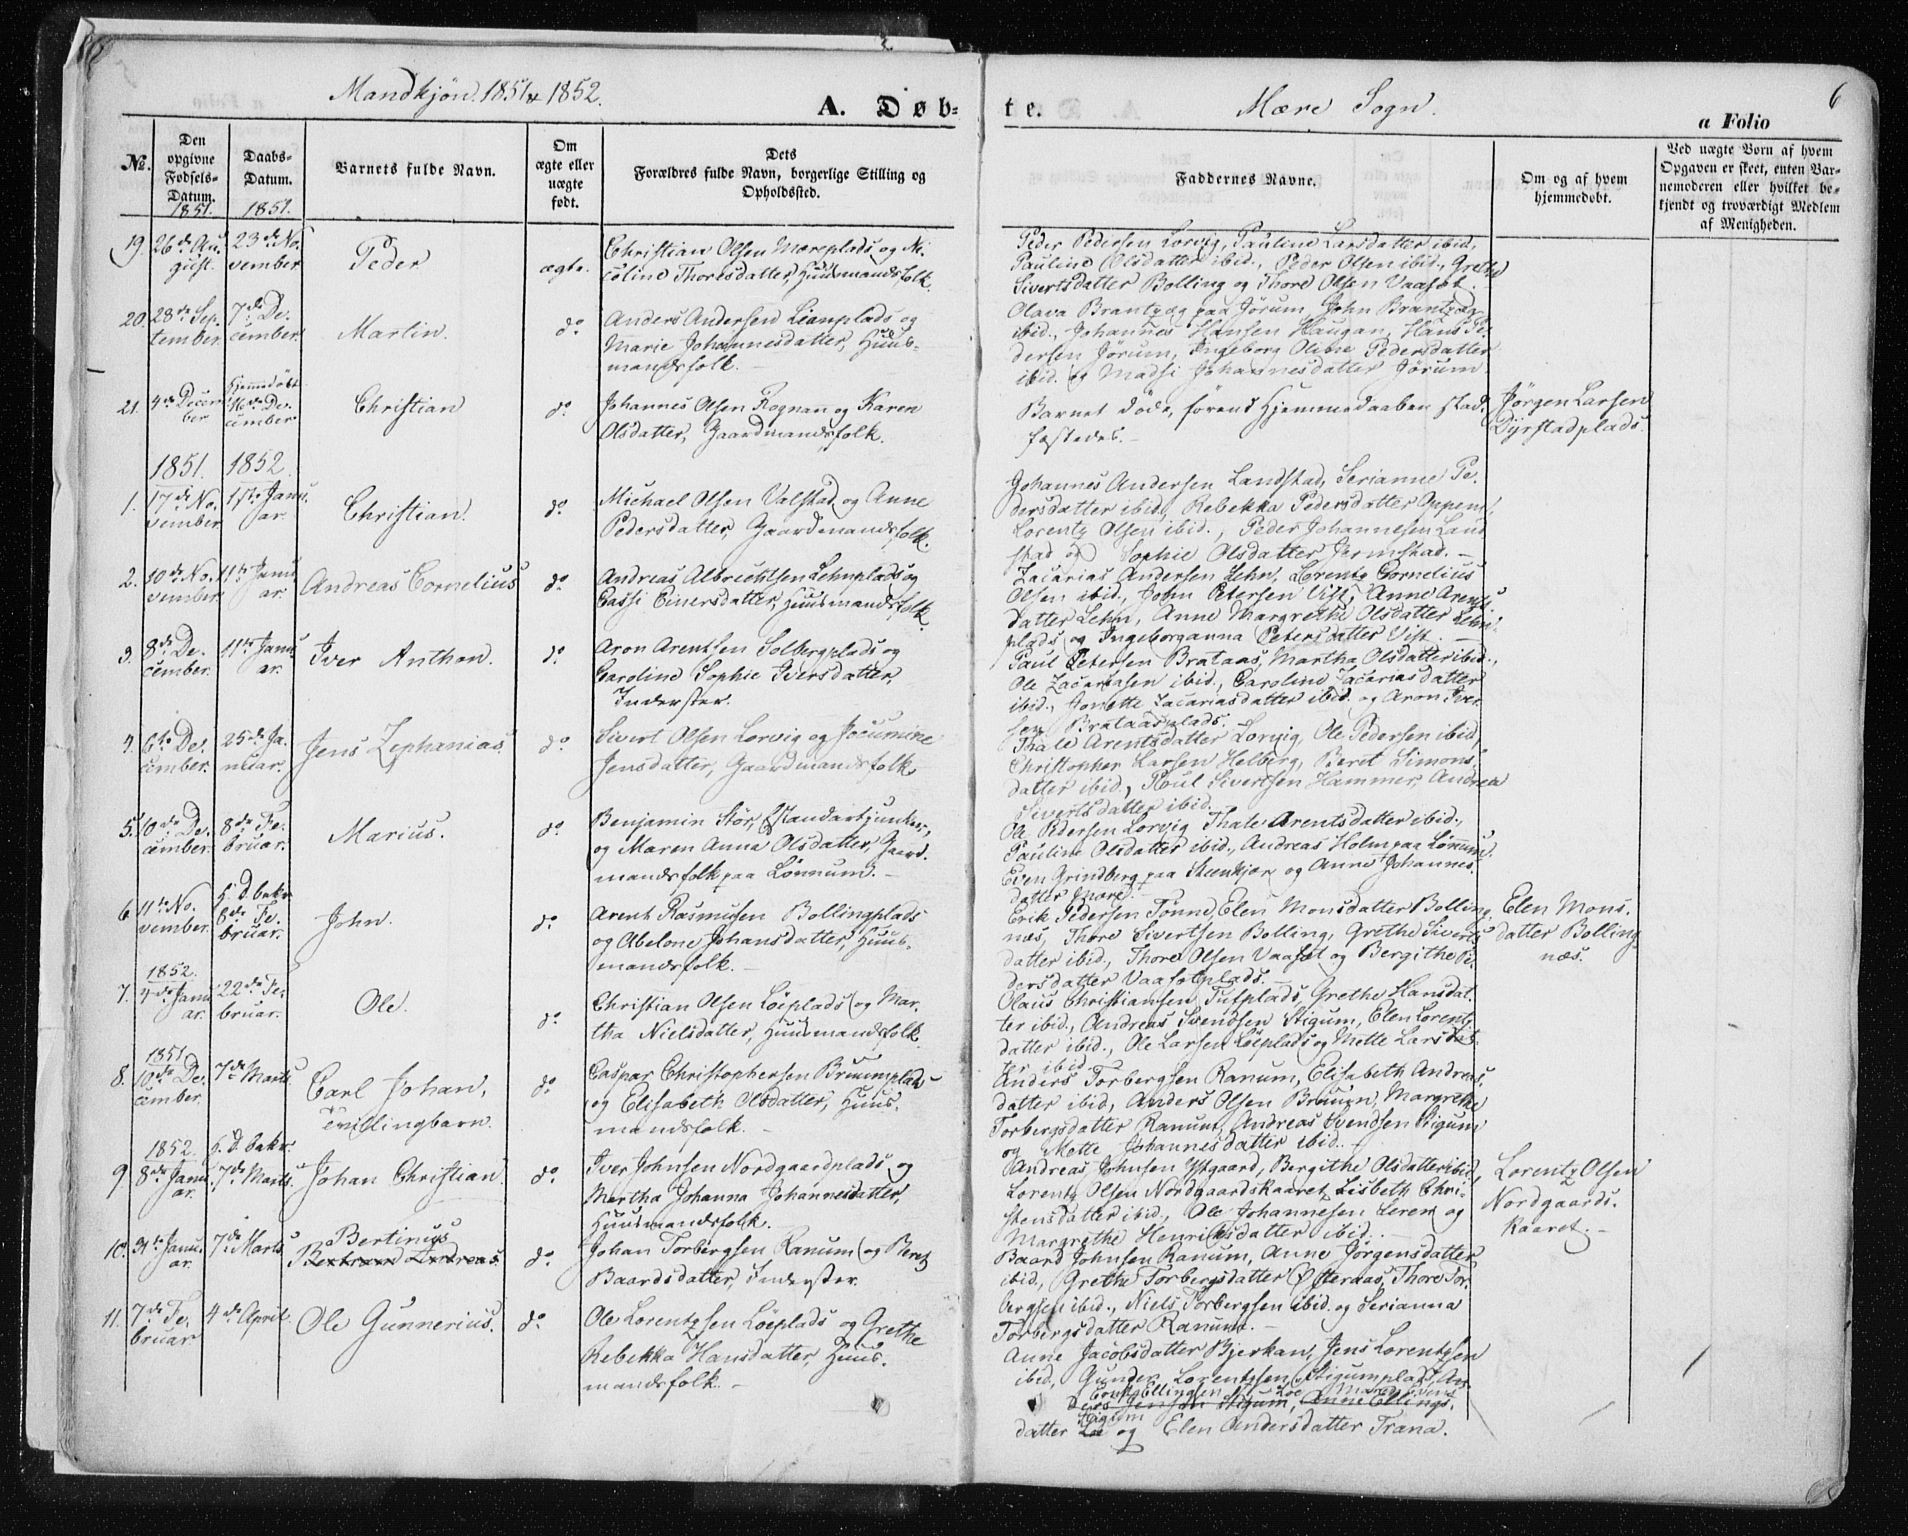 Mandkjøn. 1851 & 1852.
A. Døb-
№.
Den opgivne Fødsels-Datum.
Daabs-Datum.
Barnets fulde Navn.
Om ægte eller uægte født.
Dets Forældres fulde Navn, borgerlige Stilling og Opholdssted.
te.
Mære Sogn.
6
a Folio
Faddernes Navne.
Om og af hvem hjemmedøbt.
Ved uægte Børn af hvem Opgaven er skeet, enten Barnemoderen eller hvilket bekjendt og troværdigt Medlem af Menigheden.
1851. 1851.
19. 26de August. 23de November Peder ægte.
Christian Olsen Mæreplads og Ni-
coline Thoresdatter, Huusmandsfolk.
Peder Pedersen Lorvig, Pauline Larsdatter ibid,
Pauline Olsdatter ibid., Peder Olsen ibid., Grethe
Sivertsdatter Bolling og Thore Olsen Vaasøt.
20. 28de September. 7de December. Martin. do
Anders Andersen Lianplads og
Marie Johannesdatter, Huus-
mandsfolk.
Olava Brantzæg paa Jørum, John Brantzæg
ibid., Johannes Hansen Haugan, Hans Pe-
dersen Jørum, Ingeborg Oline Pedersdatter
ibid. og Madsi Johannesdatter Jørum
21. 4de December Hjemmedøbt December Christian do
Johannes Olsen Rognan og Karen
Olsdatter, Gaardmandsfolk.
Barnet døde, førend Hjemmedaaben stad-
fæstedes.
Jørgen Larsen
Dyrstadplads.
1851. 1852.
1. 17de November 1ste Januar. Christian. do
Michael Olsen Valstad og Anne
Pedersdatter, Gaardmandsfolk.
Johannes Andersen Landstad, Serianne Pe-
dersdatter ibid, Rebekka Pedersdatter Oppem,
Lorentz Olsen ibid., Peder Johannesen Land
stad og Sophie Olsdatter Jermstad.
2. 10de November 11te Januar. Andreas Cornelius do
Andreas Albrechtsen Lehnplads og
Cassi Einersdatter, Huusmandsfolk
Zacarias Andersen Lehn, Lorentz Cornelius
Olsen ibid., John Petersen Vist, Anne Arents-
datter Lehn, Anne Margrethe Olsdatter Lehn-
plads og Ingeborganna Petersdatter Vist.
3. 8de December. 11te Januar. Iver Anthon. do
Aron Arentsen Solbergplads og
Caroline Sophie Iversdatter,
Inderster.
Paul Petersen Brataas, Martha Olsdatter ibid.,
Ole Zacariasen ibid., Caroline Zacariasdatter
ibid., Jonette Zacariasdatter ibid. og Aron Iver-
sen Brataasplads.
4. 6te December. 25de Januar. Jens Zephanias. do
Sivert Olsen Lorvig og Jocumine
Jensdatter, Gaardmandsfolk
Thale Arentsdatter Lorvig, Ole Pedersen ibid,
Christopher Larsen Helberg, Beret Simons-
datter ibid., Poul Sivertsen Hammer, Andrea
Sivertsdatter ibid.
5. 10de December. 8de Februar. Marius. do
Benjamin Stør, Standartjunker,
og Maren Anna Olsdatter, Gaard-
mandsfolk paa Lønnum.
Ole Pedersen Lorvig Thale Arentsdatter ibid.,
Pauline Olsdatter ibid., Andreas Holm paa Lønnum,
Even Grindberg paa Steenkjær og Anne Johannes-
datter Mære.
6. 11te November. h. D. bekr. 8de Februar. John. do
Arent Rasmusen Bollingplads
og Abelone Johansdatter, Huus-
mandsfolk.
Erik Pedersen Tønne, Elen Monsdatter Bolling-
næs, Thore Sivertsen Bolling, Grethe Siverts-
datter ibid., Thore Olsen Vaasøt og Bergithe Pe-
dersdatter Vaasøtplads.
Elen Mons-
datter Bolling
næs.
1852.
7. 4de Januar. 22de Februar. Ole. do
Christian Olsen Løeplads og Mar-
tha Nielsdatter, Huusmandsfolk
Olaus Christiansen Tufplads, Grethe Hansdat-
ter ibid., Andreas Svendsen Stigum, Elen Lorentz-
datter ibid., Ole Larsen Løeplads og Mette Larsdat-
ter ibid.
1851.
8. 10de December. 7de Marts. Carl Johan, Tvillingbarn. do
Caspar Christophersen Bruumplads
og Elisabeth Olsdatter, Huus-
mandsfolk.
Anders Torbergsen Ranum, Elisabeth Andreas-
datter ibid, Anders Olsen Bruum, Margrethe
Torbergsdatter Ranum, Andreas Svendsen Stigum
og Mette Johannesdatter ibid.
1852. h. D. bekr.
9. 8de Januar. 7de Marts. Johan Christian. do
Iver Johnsen Nordgaardplads og
Martha Johanna Johannesdatter,
Huusmandsfolk.
Andreas Johnsen Ystgaard, Bergithe Olsdatter ibid,
Lorentz Olsen Nordgaardskaaret, Lisbeth Chri-
stensdatter ibid, Ole Johannesen Leren og
Margrethe Henriksdatter ibid.
Lorentz Olsen
Nordgaards-
kaaret.
10. 31te Januar. 7de Marts. Bertinus Andreas. do
Johan Torbergsen Ranum og Beret
Baardsdatter, Inderster.
Baard Johnsen Ranum, Anne Jørgensdatter
ibid, Grethe Torbergsdatter Østeraas, Thore Tor-
bergsen ibid., Niels Torbergsen ibid. og Serianna
Torbergsdatter Ranum.
11. 7de Februar 4de April. Ole Gunnerius. do
Ole Lorentzsen Løeplads og Grethe
Rebekka Hansdatter, Huus-
mandsfolk.
Anne Jacobsdatter Bjerkan, Jens Lorentzsen
ibid, Gunder Lorentzsen Stigumplads, An-
Ellingsen Løe
ders Jensen Stigum, Anne Ellings-
Stigum
datter Løe og Elen Andersdatter Trana.